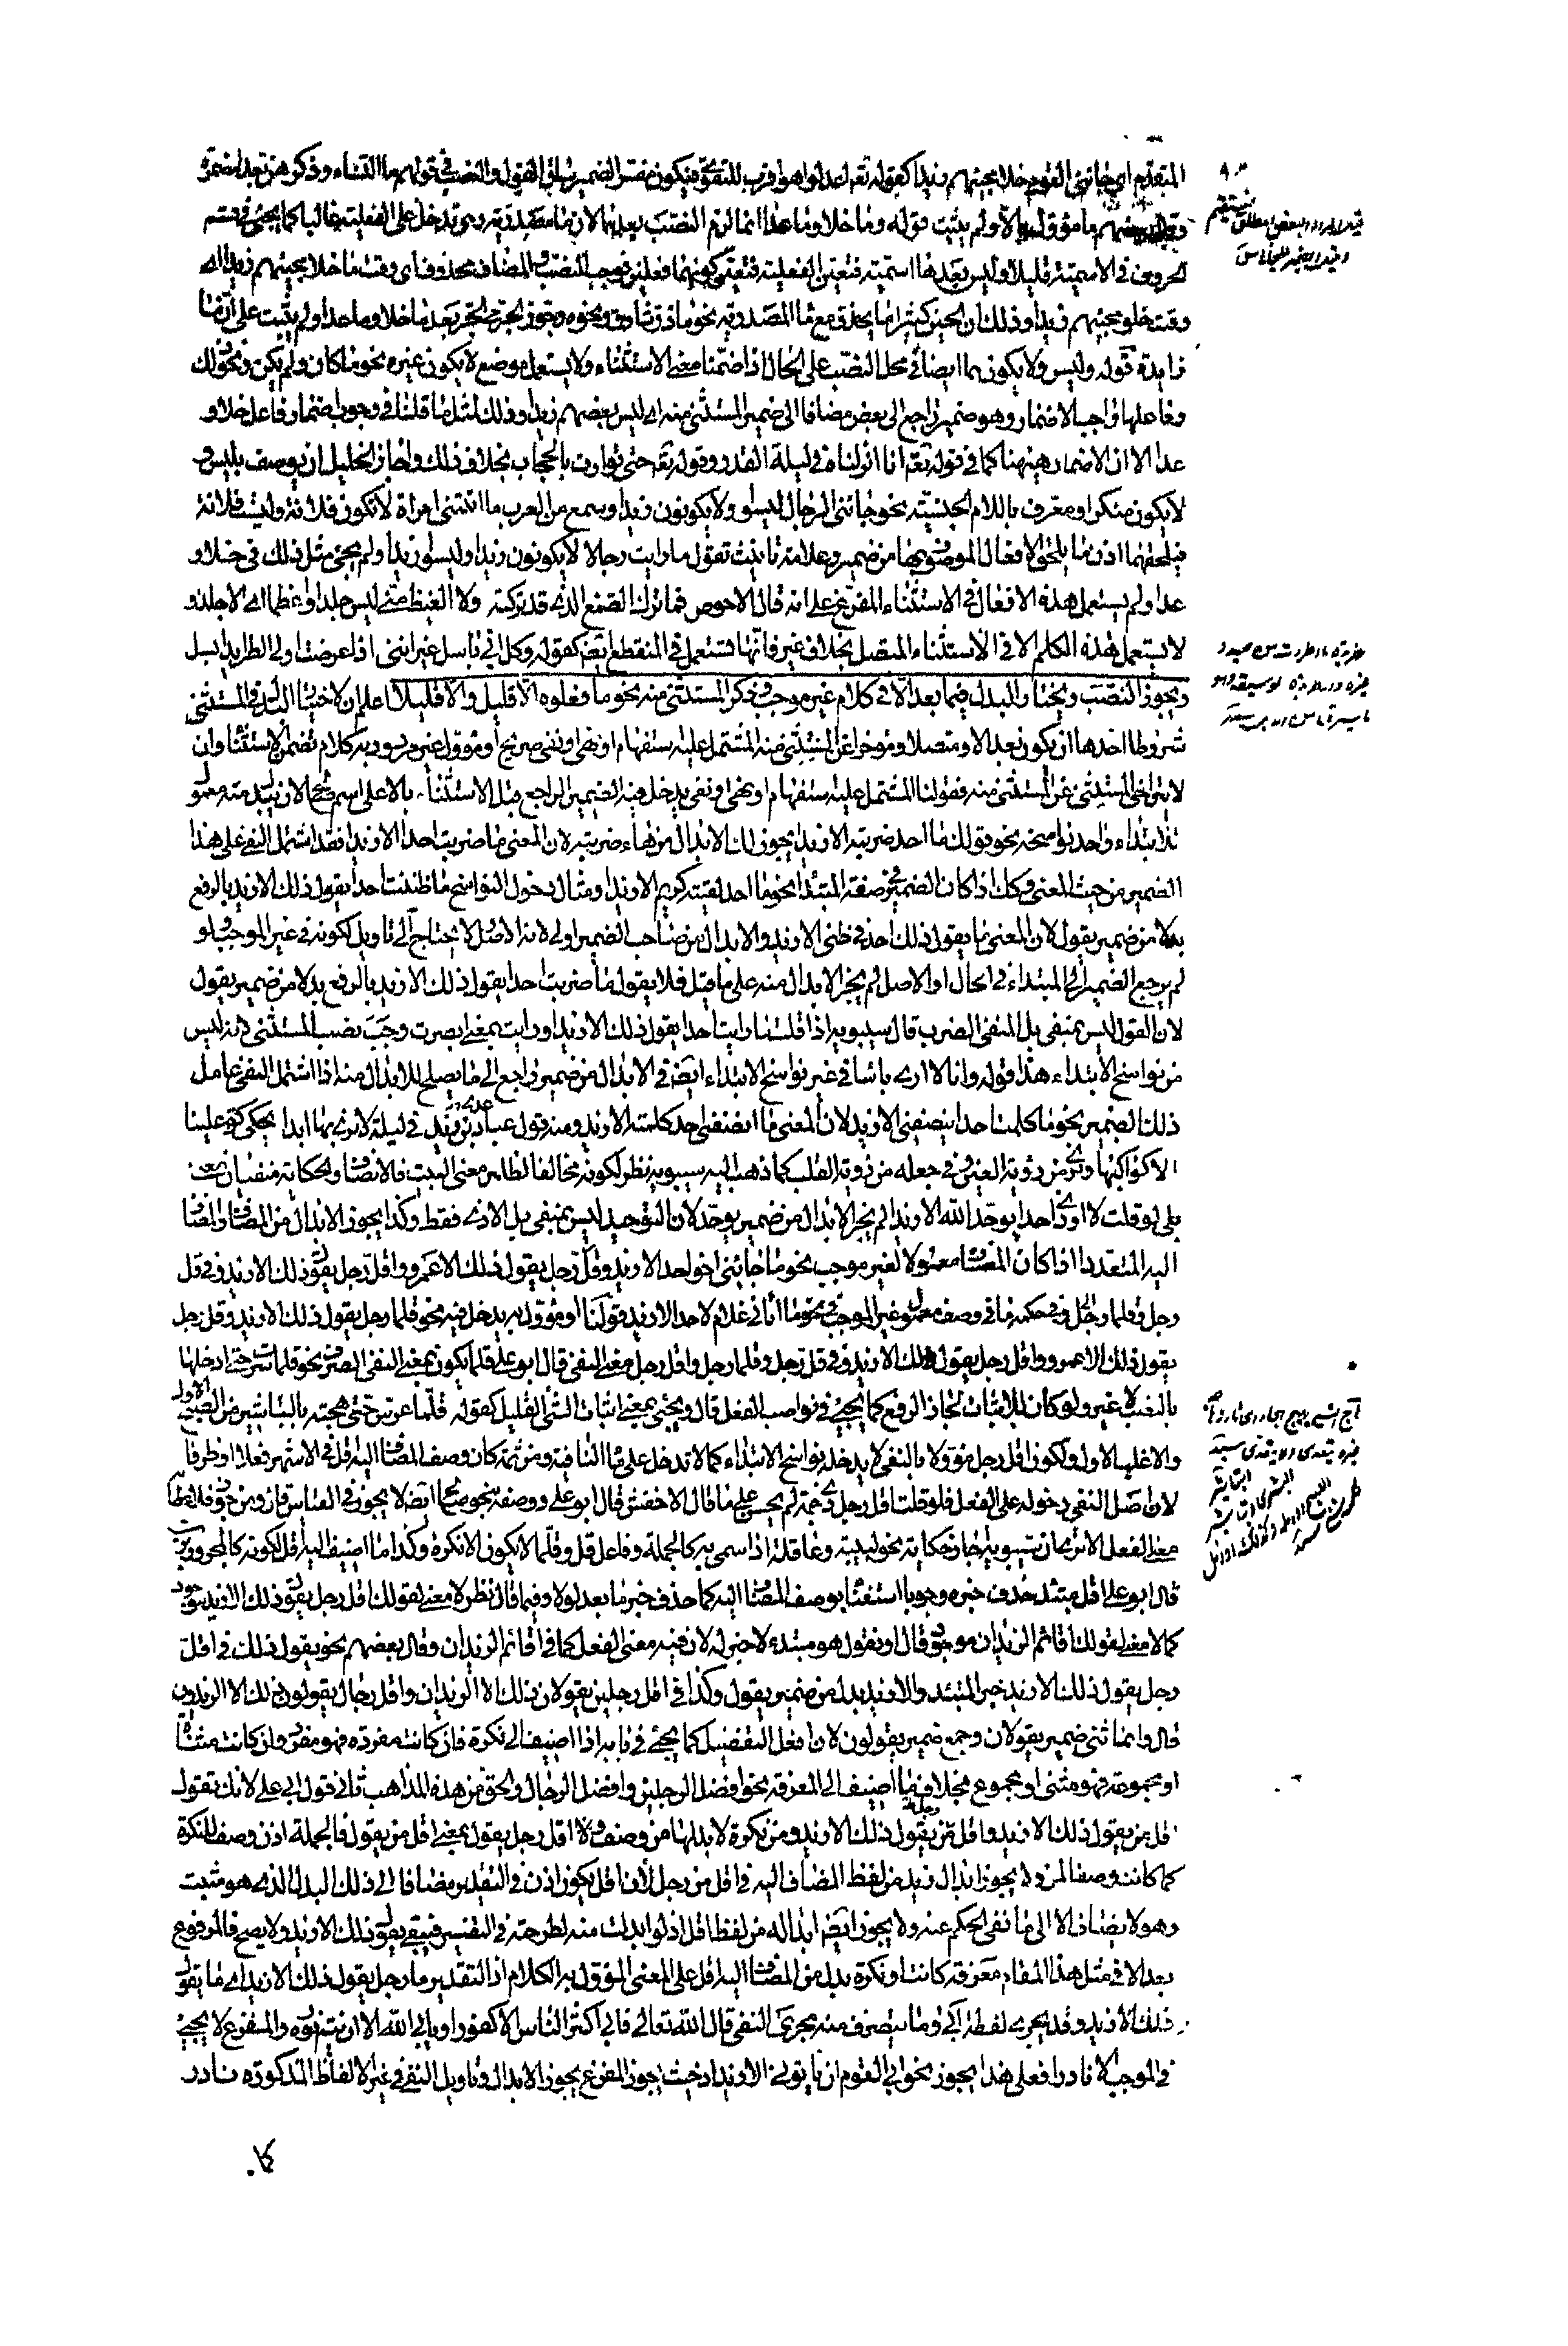 المتقدم اي جائني القوم خلا مجيئهم زيدا كقوله تعه اعدلوا هو اقرب للتقوى فيكون مفسر الضمير سياق القول
وما خلا وما عدا انما لزم النصب بعدهما لان ما مصدرية وهي تدخل على الفعلية غالبا كما يجئ في قسم
الحروف في الاسمية قليلا وليس بعدها اسمية فتعين الفعلية فتعين كونهما فعلين فوجب النصب والمضاف محذوف اي وقت ما خلا مجيئهم زيدا اي
وقت خلو مجيئهم زيدا وذلك ان الحين كثيرا ما يحذف مع ما المصدرية نحو ما ذر شارق ونحوه وجوز الجرمي الجر بعد ما خلا وما عدا ولم يثبت على ان ما
زايدة قوله وليس ولا يكون هما ايضا في محل النصب على الحال اذا ضمنا معنى الاستثناء ولا يستعمل موضع لا يكون غيره نحو ما كان ولم يكن ونحو ذلك
وفاعلها واجب الاضمار وهو ضمير راجع الى بعض مضافا الى ضمير المستثنى منه اي ليس بعضهم زيدا وذلك لمثل ما قلنا في وجوب اضمار فاعل خلا و
عدا الا ان الاضمار هيهنا كما في قوله تعه انا انزلناه في ليلة القدر وقوله تعه حتى توارت بالحجاب بخلاف ذلك واجاز الخليل ان يوصف بليس و
لا يكون منكر او معرف باللام الجنسية نحو جائني الرجال ليسوا ولا يكونون زيدا وسمع من العرب ما اتتني امراة لا تكون فلانة وليست فلانة
فيلحقهما اذن ما يلحق الافعال الموصوف بها من ضمير وعلامة تانيث تقول ما رايت رجالا لا يكونون زيدا وليسوا زيدا ولم يجئ مثل ذلك في خلا و
عدا ولم يستعمل هذه الافعال في الاستثناء المفرغ على انه قال الاحوص فما ترك الصنع الذي قد تركته ولا الغيظ مني ليس جلدا واعظما اي الا جلدا و
لا يستعمل هذه الكلم الا في الاستثناء المتصل بخلاف غير فانها تستعمل في المنقطع ايضه كقوله وكل ابي باسل غير انني اذا عرضت اولى الطرايد ابسل
ويجوز النصب ويختار البدل فيما بعد الا في كلام غير موجب وذكر المستثنى منه نحو ما فعلوه الا قليل والا قليلا اعلم ان لاختيار البدل في المستثنى
شروطا احدها ان يكون بعد الا ومتصلا ومؤخرا عن المستثنى منه المشتمل عليه استفهام او نهي او نفي صريح او مؤول غير مردود به كلام تضمن الاستثناء وان
لا يتراخى المستثنى عن المستثنى منه فقولنا المشتمل عليه استفهام او نهي او نفي يدخل فيه الضمير الراجع قبل الاستثناء بالا على اسم صالح لان يبدل منه معمول
للابتداء او احد نواسخه نحو قولك ما احد ضربته الا زيدا يجوز لك الابدال من هاء ضربته لان المعنى ما ضربت احدا الا زيدا فقد اشتمل النفي على هذا
الضمير من حيث المعنى وكك اذا كان الضمير في صفة المبتدا نحو ما احد لقيته كريم الا زيدا ومثال دخول النواسخ ما ظننت احدا يقول ذلك الا زيد بالرفع
بدلا من ضمير يقول لان المعنى ما يقول ذلك احد في ظني الا زيد والابدال من صاحب الضمير اولى لانه الاصل ولا يحتاج الى تاويل لكونه في غير الموجب ولو
لم يرجع الضمير الى المبتداء في الحال او الاصل لم يجز الابدال منه على ما قيل فلا يقول ما ضربت احدا يقول ذلك الا زيد بالرفع بدلا من ضمير يقول
لان القول ليس بمنفي بل المنفي الضرب قال سيبويه اذا قلت ما رايت احدا يقول ذلك الا زيدا ورايت بمعنى ابصرت وجب نصب المستثنى لانه ليس
من نواسخ الابتداء هذا قوله وانا لا ارى باسا في غير نواسخ الابتداء ايضه في الابدال من ضمير راجع الى ما يصلح للابدال منه اذا اشتمل النفي عامل
ذلك الضمير نحو ما كلمت احدا ينصفني الا زيد لان المعنى ما انصفني احد كلمته الا زيد ومنه قول عدي بن زيد في ليلة لا نرى بها احدا يحكي علينا
الا كواكبها وترى من رؤية العين وفي جعله من رؤية القلب كما ذهب اليه سيبويه نظر لكونه مخالفا لظاهر معنى البيت فالانصاف والحكاية منفيان معنى
بلى لو قلت لا اوذي احدا يوحد الله الا زيدا لم يجز الابدال من ضمير يوحد لان التوحيد ليس بمنفي بل الاذى فقط وكذا يجوز الابدال من المضاف والمضاف
اليه المتعدد اذا كان المضاف معمولا لغير موجب نحو ما جائني اخو احد الا زيد وقل رجل يقول ذلك الا عمرو واقل رجل يقول ذلك الا زيد وفي قل
رجل وقلما رجل وفي حكمه ما في وصف معمول غير الموجب نحو ما اتاني غلام لاحد الا زيد قولنا او مؤول به يدخل فيه نحو قلما رجل يقول ذلك الا زيد وقل رجل
يقول ذلك الا عمرو واقل رجل يقول ذلك الا زيد وفي قل رجل وقلما رجل واقل رجل معنى النفي قال ابو علي قلما يكون بمعنى النفي الصرف نحو قلما سرت حتى ادخلها
بالنصب لا غير ولو كان للاثبات لجاز الرفع كما يجئ في نواصب الفعل قال ويجئ بمعنى اثبات الشئ القليل كقوله قلما عرس حتى هجته بالتباشير من الصبح الاول
والاغلب الاول ولكون اقل رجل مؤولا بالنفي لا يدخله نواسخ الابتداء كما لا تدخل على ما النافية ومن ثمه كان وصف المضاف اليه اقل في الاشهر فعلا او ظرفا
لان اصل النفي دخوله على الفعل فلو قلت اقل رجل ذي جمة لم يحسن على ما قال الاخفش قال ابو علي ووصفه بنحو صالح ايضه لا يجوز في القياس
معنى الفعل الا ترى ان سيبويه اجاز حكاية نحو لبيبة وعاقلة اذا سمى به كالجملة وفاعل قل وقلما لا يكون الا نكرة وكذا ما اضيف اليه اقل لكونه كالمجرور برب
قال ابو علي اقل مبتدا حذف خبره وجوبا استغناء بوصف المضاف اليه كما حذف خبر ما بعد لولا وفيما قال نظر لا معنى لقولك اقل رجل يقول ذلك الا زيد موجود
كما لا معنى لقولك اقائم الزيدان موجود قال او نقول هو مبتدء لا خبر له لان فيه معنى الفعل كما في اقائم الزيدان وقال بعضهم نحو يقول ذلك في اقل
رجل يقول ذلك الا زيد خبر المبتدء والا زيد بدل من ضمير يقول وكذا في اقل رجلين يقولان ذلك الا الزيدان واقل رجال يقولون ذلك الا الزيدون
قال وانما ثني ضمير يقولان وجمع ضمير يقولون لان افعل التفضيل كما يجئ في بابه اذا اضيف الى نكرة فان كانت مفردة فهو مفرد وان كانت مثناة
او مجموعة فهو مثنى او مجموع بخلاف ما اضيف الى المعرفة نحو افضل الرجلين وافضل الرجال والحق من هذه المذاهب ثاني قولي ابي علي لانك تقول
اقل من يقول ذلك الا زيد واقل رجل يقول ذلك الا زيد ومن نكرة لا بد لها من وصف ولان اقل رجل يقول بمعنى اقل من يقول فالجملة اذن وصف للنكرة
كما كانت وصفا لمن ولا يجوز ابدال زيد من لفظ المضاف اليه في اقل من رجل لان اقل يكون اذن في التقدير مضافا الى ذلك البدل الذي هو مثبت
وهو لا يضاف الا الى ما نفي الحكم عنه ولا يجوز ايضه ابداله من لفظ اقل اذ لو ابدلت منه لطرحته في التفسير فيبقى يقول ذلك الا زيد ولا يصح فالمرفوع
بعد الا في مثل هذا المقام معرفة كانت او نكرة بدل من المضاف اليه اقل على المعنى المؤول به الكلام اذ التقدير ما رجل يقول ذلك الا زيد اي ما يقول
ذلك الا زيد وقد يجرى لفظ ابى وما يتصرف منه مجرى النفي قال الله تعالى فابى اكثر الناس الا كفورا ويابى الله الا ان يتم نوره والمفرغ لا يجئ
في الموجب الا نادرا فعلى هذا يجوز نحو ابى القوم ان ياتوني الا زيد اذ حيث يجوز المفرغ يجوز الابدال وتاويل النفي في غير الالفاظ المذكورة نادر
كا